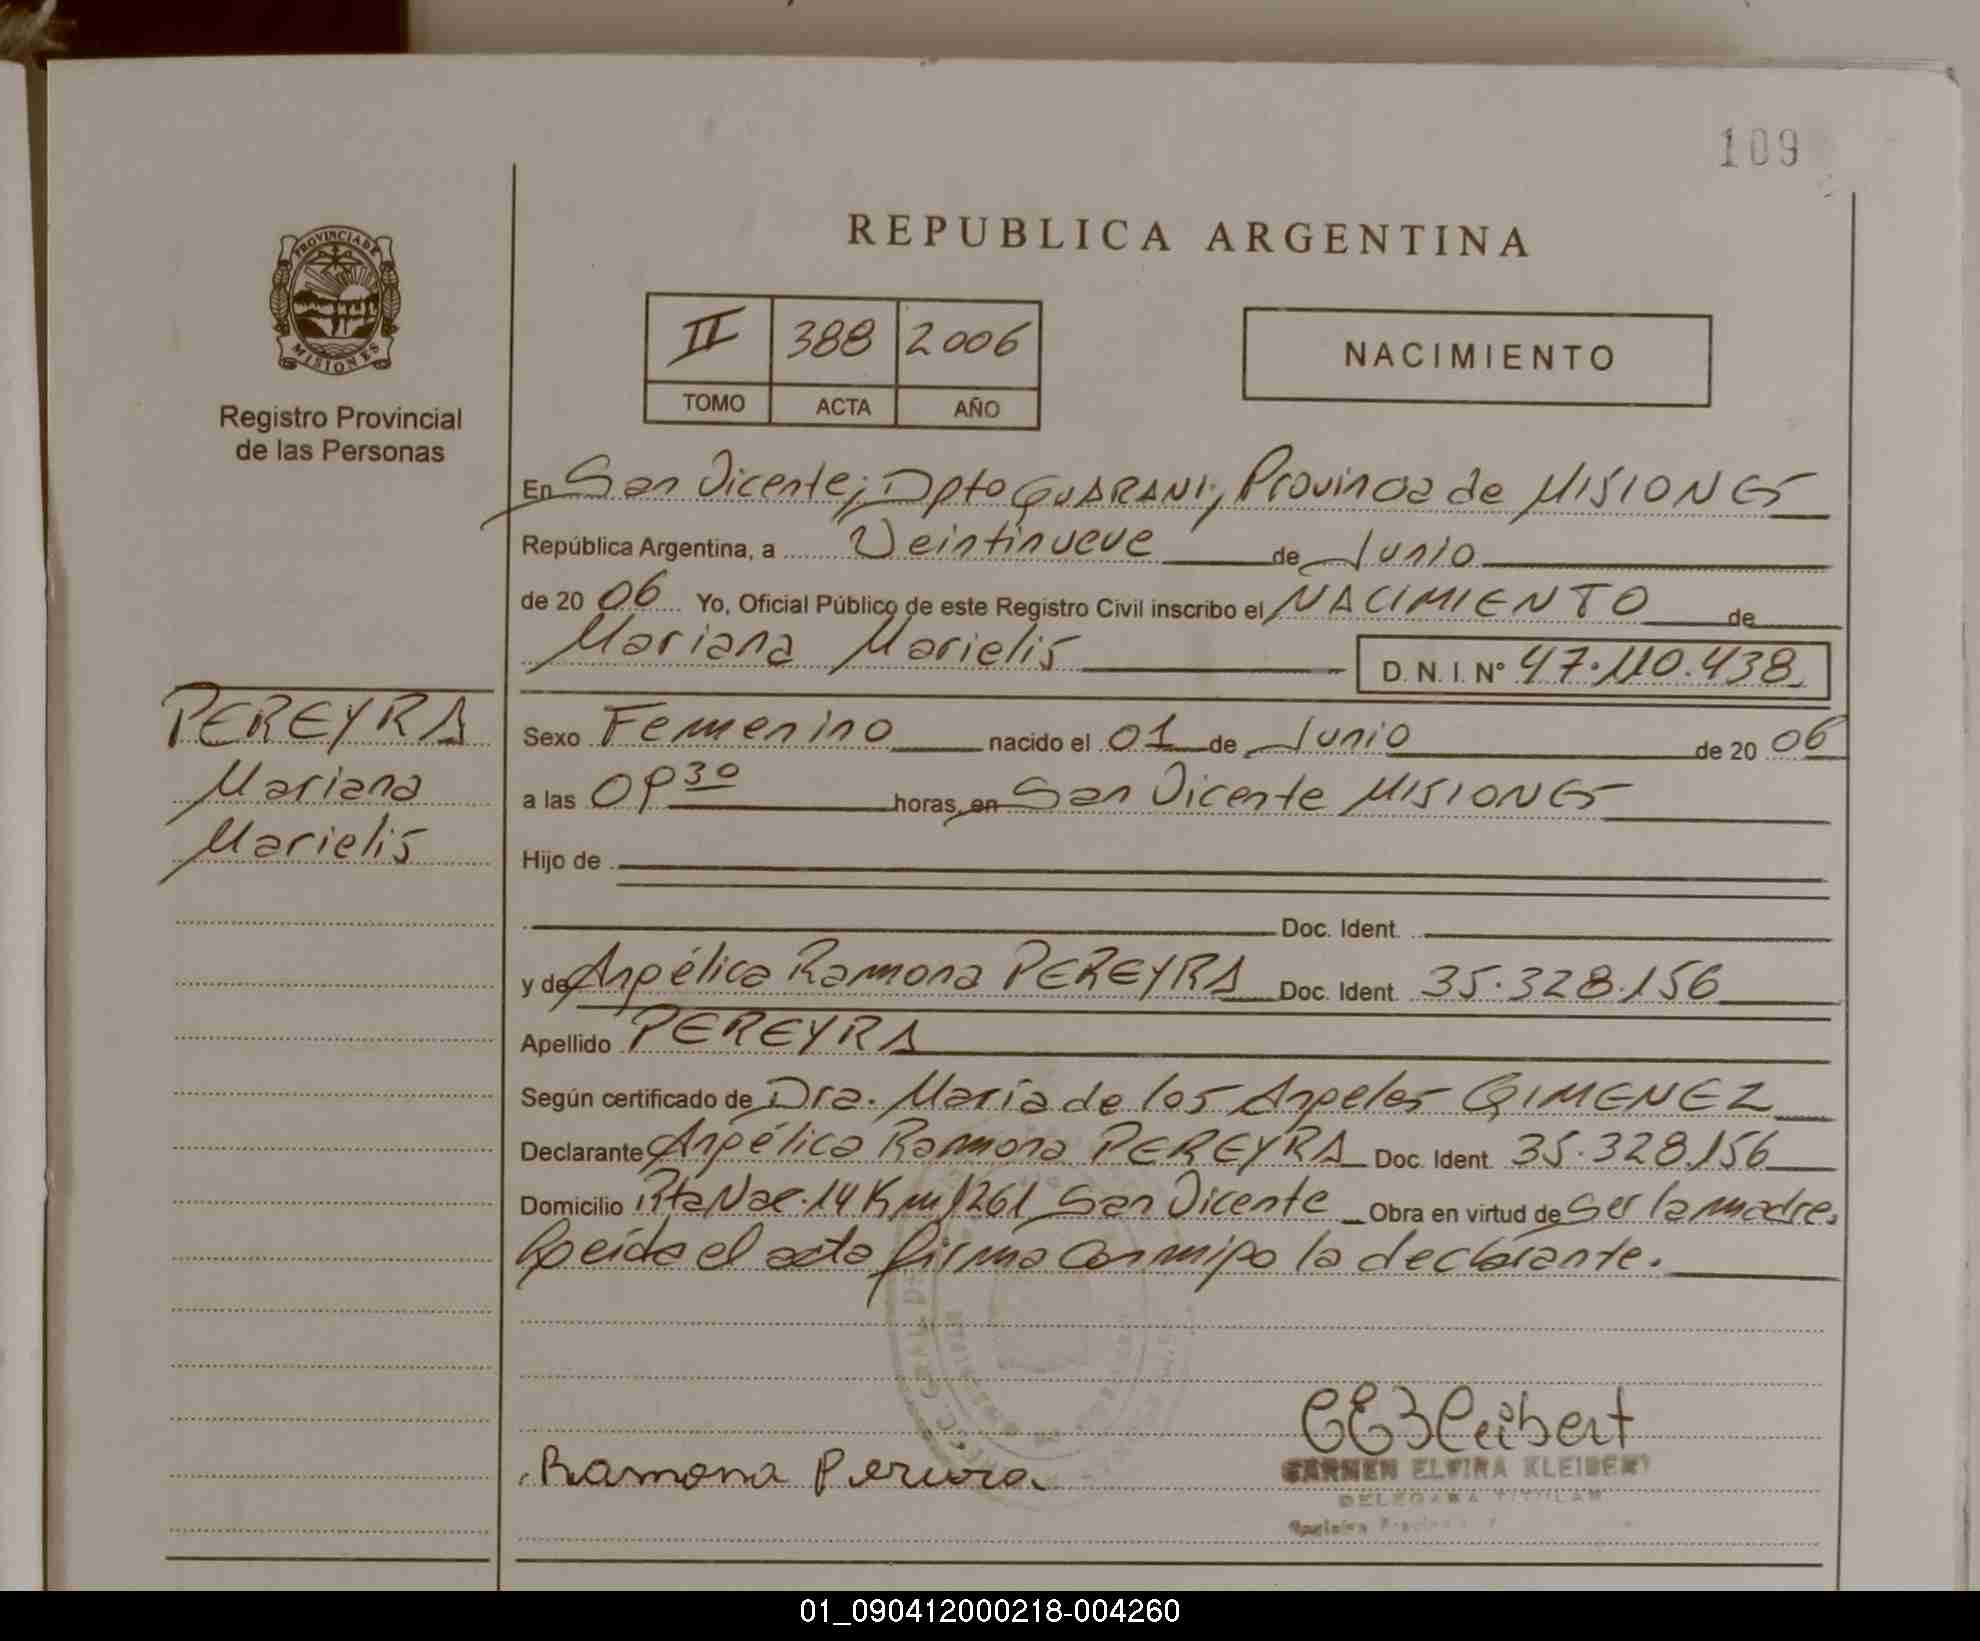 109
REPUBLICA ARGENTINA
PROVINCIA DE
MISIONES
Registro Provincial
de las Personas
II 388 2006
TOMO ACTA AÑO
NACIMIENTO
En San Vicente; Dpto GUARANI, Provincia de MISIONES
República Argentina, a Veintinueve de Junio
de 20 06 Yo, Oficial Público de este Registro Civil inscribo el NACIMIENTO de
Mariana Marielis D. N. I. Nº 47.110.438
PEREYRA
Mariana
Marielis
Sexo Femenino nacido el 01 de Junio de 20 06
a las 09 30 horas, en San Vicente MISIONES
Hijo de
Doc. Ident.
y de Angélica Ramona PEREYRA Doc. Ident. 35.328.156
Apellido PEREYRA
Según certificado de Dra. María de los Angeles GIMENEZ
Declarante Angélica Ramona PEREYRA Doc. Ident. 35.328.156
Domicilio Rta Nac. 14 Km 1261 San Vicente Obra en virtud de Ser la madre.
Leída el acta firma conmigo la declarante.
Ramona
CEKleibert
CARMEN ELVIRA KLEIBERT
DELEGADA TITULAR
01_090412000218-004260